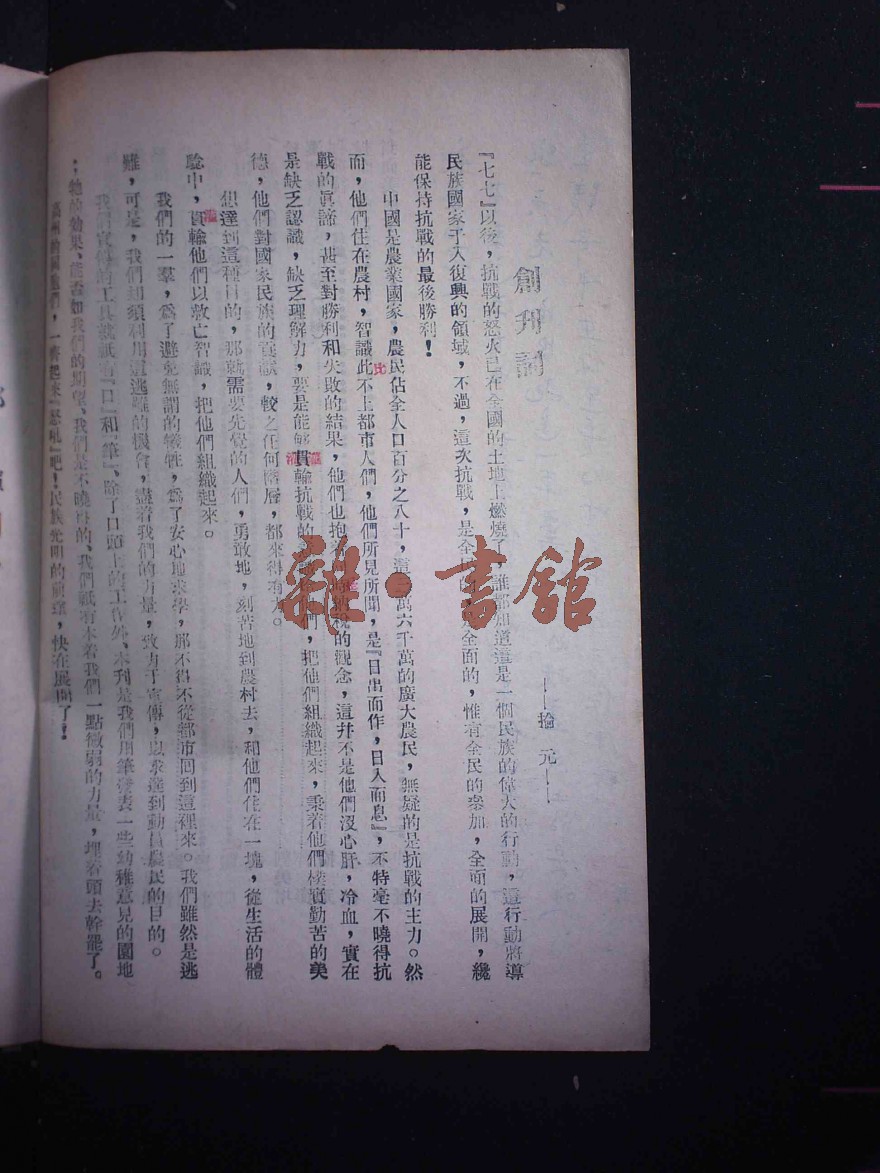 創刊詞
——拾元——
『七七』以後，抗戰的怒火已在全國的土地上燃燒了，誰都知道這是一個民族的偉大的行動，這行動將導
民族國家于入復興的領域，不過，這次抗戰，是全民的全面的，惟有全民的參加，全面的展開，纔
能保持抗戰的最後勝利！
中國是農業國家，農民佔全人口百分之八十，這三萬六千萬的廣大農民，無疑的是抗戰的主力。然
而，他們住在農村，智識此不上都市人們，他們所見所聞，是『日出而作，日入而息』，不特毫不曉得抗
比
戰的眞諦，甚至對勝利和失敗的結果，他們也抱着納稅的觀念，這幷不是他們沒心肝，冷血，實在
是缺乏認識，缺乏理解力，要是能够貫輸抗戰的他們，把他們組織起來，秉着他們樸實勤苦的美
灌
德，他們對國家民族的貢獻，較之任何階層，都來得有力。
想達到這種目的，那就需要先覺的人們，勇敢地，刻苦地到農村去，和他們住在一塊，從生活的體
驗中，貫輸他們以救亡智識，把他們組織起來。
灌
我們的一羣，爲了避免無謂的犧牲，爲了安心地求學，那不得不從都市回到這裡來。我們雖然是逃
難，可是，我們却須利用這逃難的機會，盡着我們的力量，致力于宣傳，以求達到動員農民的目的。
我們宣傳的工具就祇有『口』和『筆』、除了口頭上的工作外、本刊是我們用筆發表一些幼稚意見的園地
；牠的効果、能否如我們的期望、我們是不曉得的、我們祇有本着我們一點微弱的力量，埋着頭去幹罷了。
高州的同胞們，一齊起來『怒吼』吧！民族光明的前途，快在展開了！
雜·書館